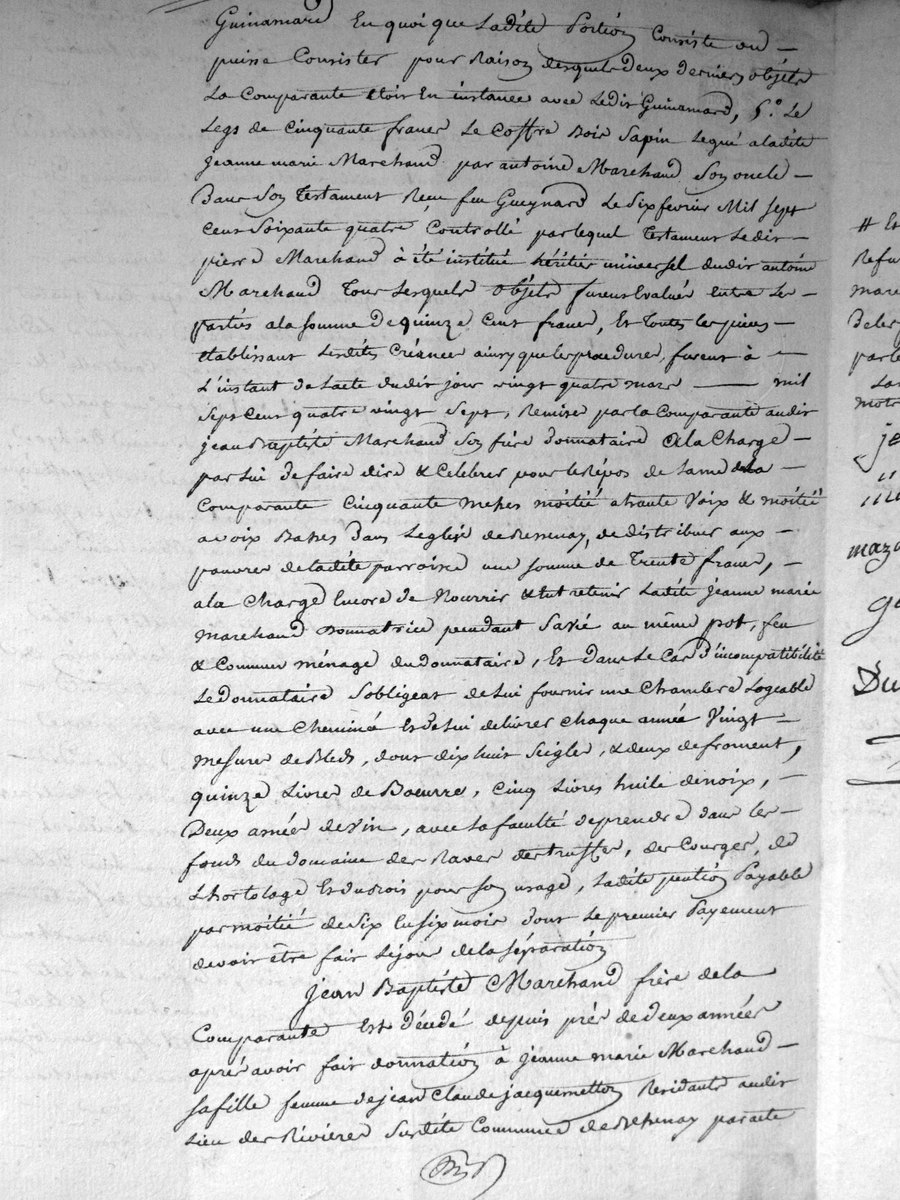 Guinamard En quoi que Ladite Portion Consiste ou —
puisse Consister pour Raison desquels deux derniers objets
La Comparante étoit En instance avec Ledit Guinamard, 5.° Le
Legs de Cinquante francs Le Coffre Bois Sapin Legué aladite
jeanne marie Marchand par antoine Marchand Son oncle —
Dans Son Testament Reçu feu Gueynard Le Six fevrier Mil Sept
Cent Soixante quatre Controllé par lequel Testament Ledit —
pierre Marchand à été institué héritier universel dudit antoine
Marchand Tous Lesquels objets furent Evalués entre Les —
parties ala Somme De quinze Cent francs, Et Toutes les pieces —
établissant Lesdites Créances ainsy que les procédures, furent à —
L'instant de L'acte dudit jour vingt quatre mars — mil
Sept Cent quatre vingt Sept, Remise par la Comparante audit
jean Baptiste Marchand Son frère donnataire àla Charge —
par Lui de faire dire & Célébrer pour le Répos de Lame dela —
Comparante Cinquante messes moitié ahaute Voix & moitié
avoix Basses Dans Leglise de , de distribuer aux —
pauvres deladite parroisse une Somme de Trente francs, —
ala Charge Encore de Nourrir & Entretenir Ladite jeanne marie
Marchand Donnatrice pendant Savie au même pot, feu
& Commun ménage dudonnataire, Et dans Le Cas d'incompatibilité
Ledonnataire Sobligeat deLui fournir une Chambre Logeable
avec une Cheminé Et deLui delivrer Chaque année Vingt —
mesures de Bleds, dont dix huit Seigles, & deux de froment,
quinze Livres de Boeurre, Cinq Livres huile denoix, —
Deux années de Vin, avec La faculté deprendre dans les —
fonds du domaine des Raves des truffes, des Courges, de
L'hortolage Et du Bois pour Son usage, Ladite pention Payable
par moitié de Six En Six mois dont Le premier Payement
devoit être fait Lejour dela Séparation
Jean Baptiste Marchand frère dela
Comparante Est décédé depuis près dedeux années
aprés avoir fait donnation à jeanne marie Marchand —
Safille femme dejean Claude jacquemetton Residante audit
Lieu des Rivières Susdite Commune de par acte